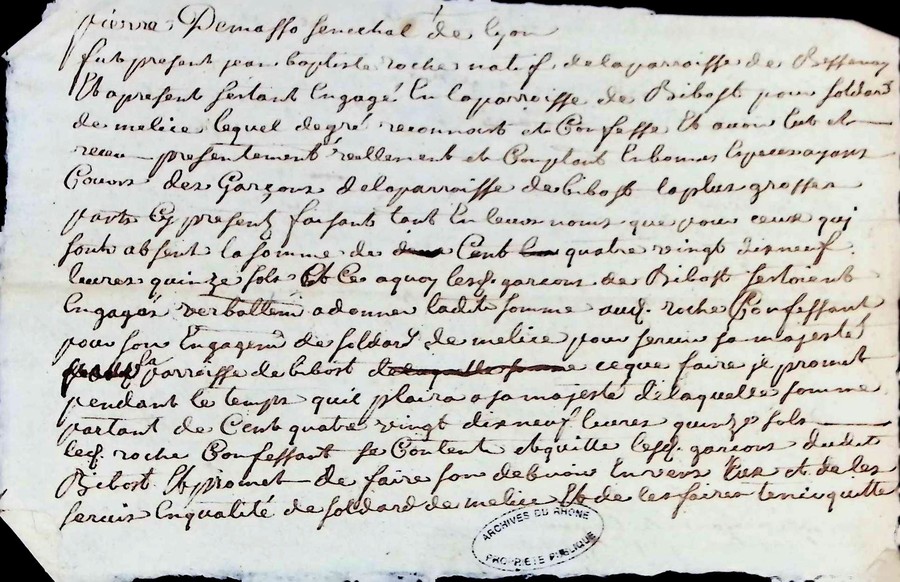 pierre Demasso senechal de lyon
fut present jean baptiste roche natif de la parroisse de Bessenay
Et apresent sestant Engagé En la parroisse de Bibost pour soldard
de melice lequel de gré reconnoit et Confesse Et avoir Eut et
receu presentement reellement et Comptant En bonnes Especes ayant
Cours des Garçons de la parroisse de bibost la plus grosse
partie Cy presentz faisant tant En leurs noms que pour ceux qui
sont absent la somme de Cent quatre vingt disneuf
livres quinze sols Et Ce aquoy lesd. garcons de Bibost sestoient
Engagés verballemt a donner ladite somme aud. roche Confessant
pour son Engagemt de soldard de melice pour servir sa majesté
pour la parroisse de bibost ce que faire je promet
pendant le temps quil plaira a sa majesté de laquelle somme
partant de Cent quatre vingt disneuf livres quinze sols
led. roche Confessant se Content et quitte lesd. garcons dudit
Bibost Et promet de faire son debvoir Envers Eux et de les
servir En qualité de soldard de melice Et de les faire tenir quitte
ARCHIVES DU RHONE
PROPRIETE PUBLIQUE